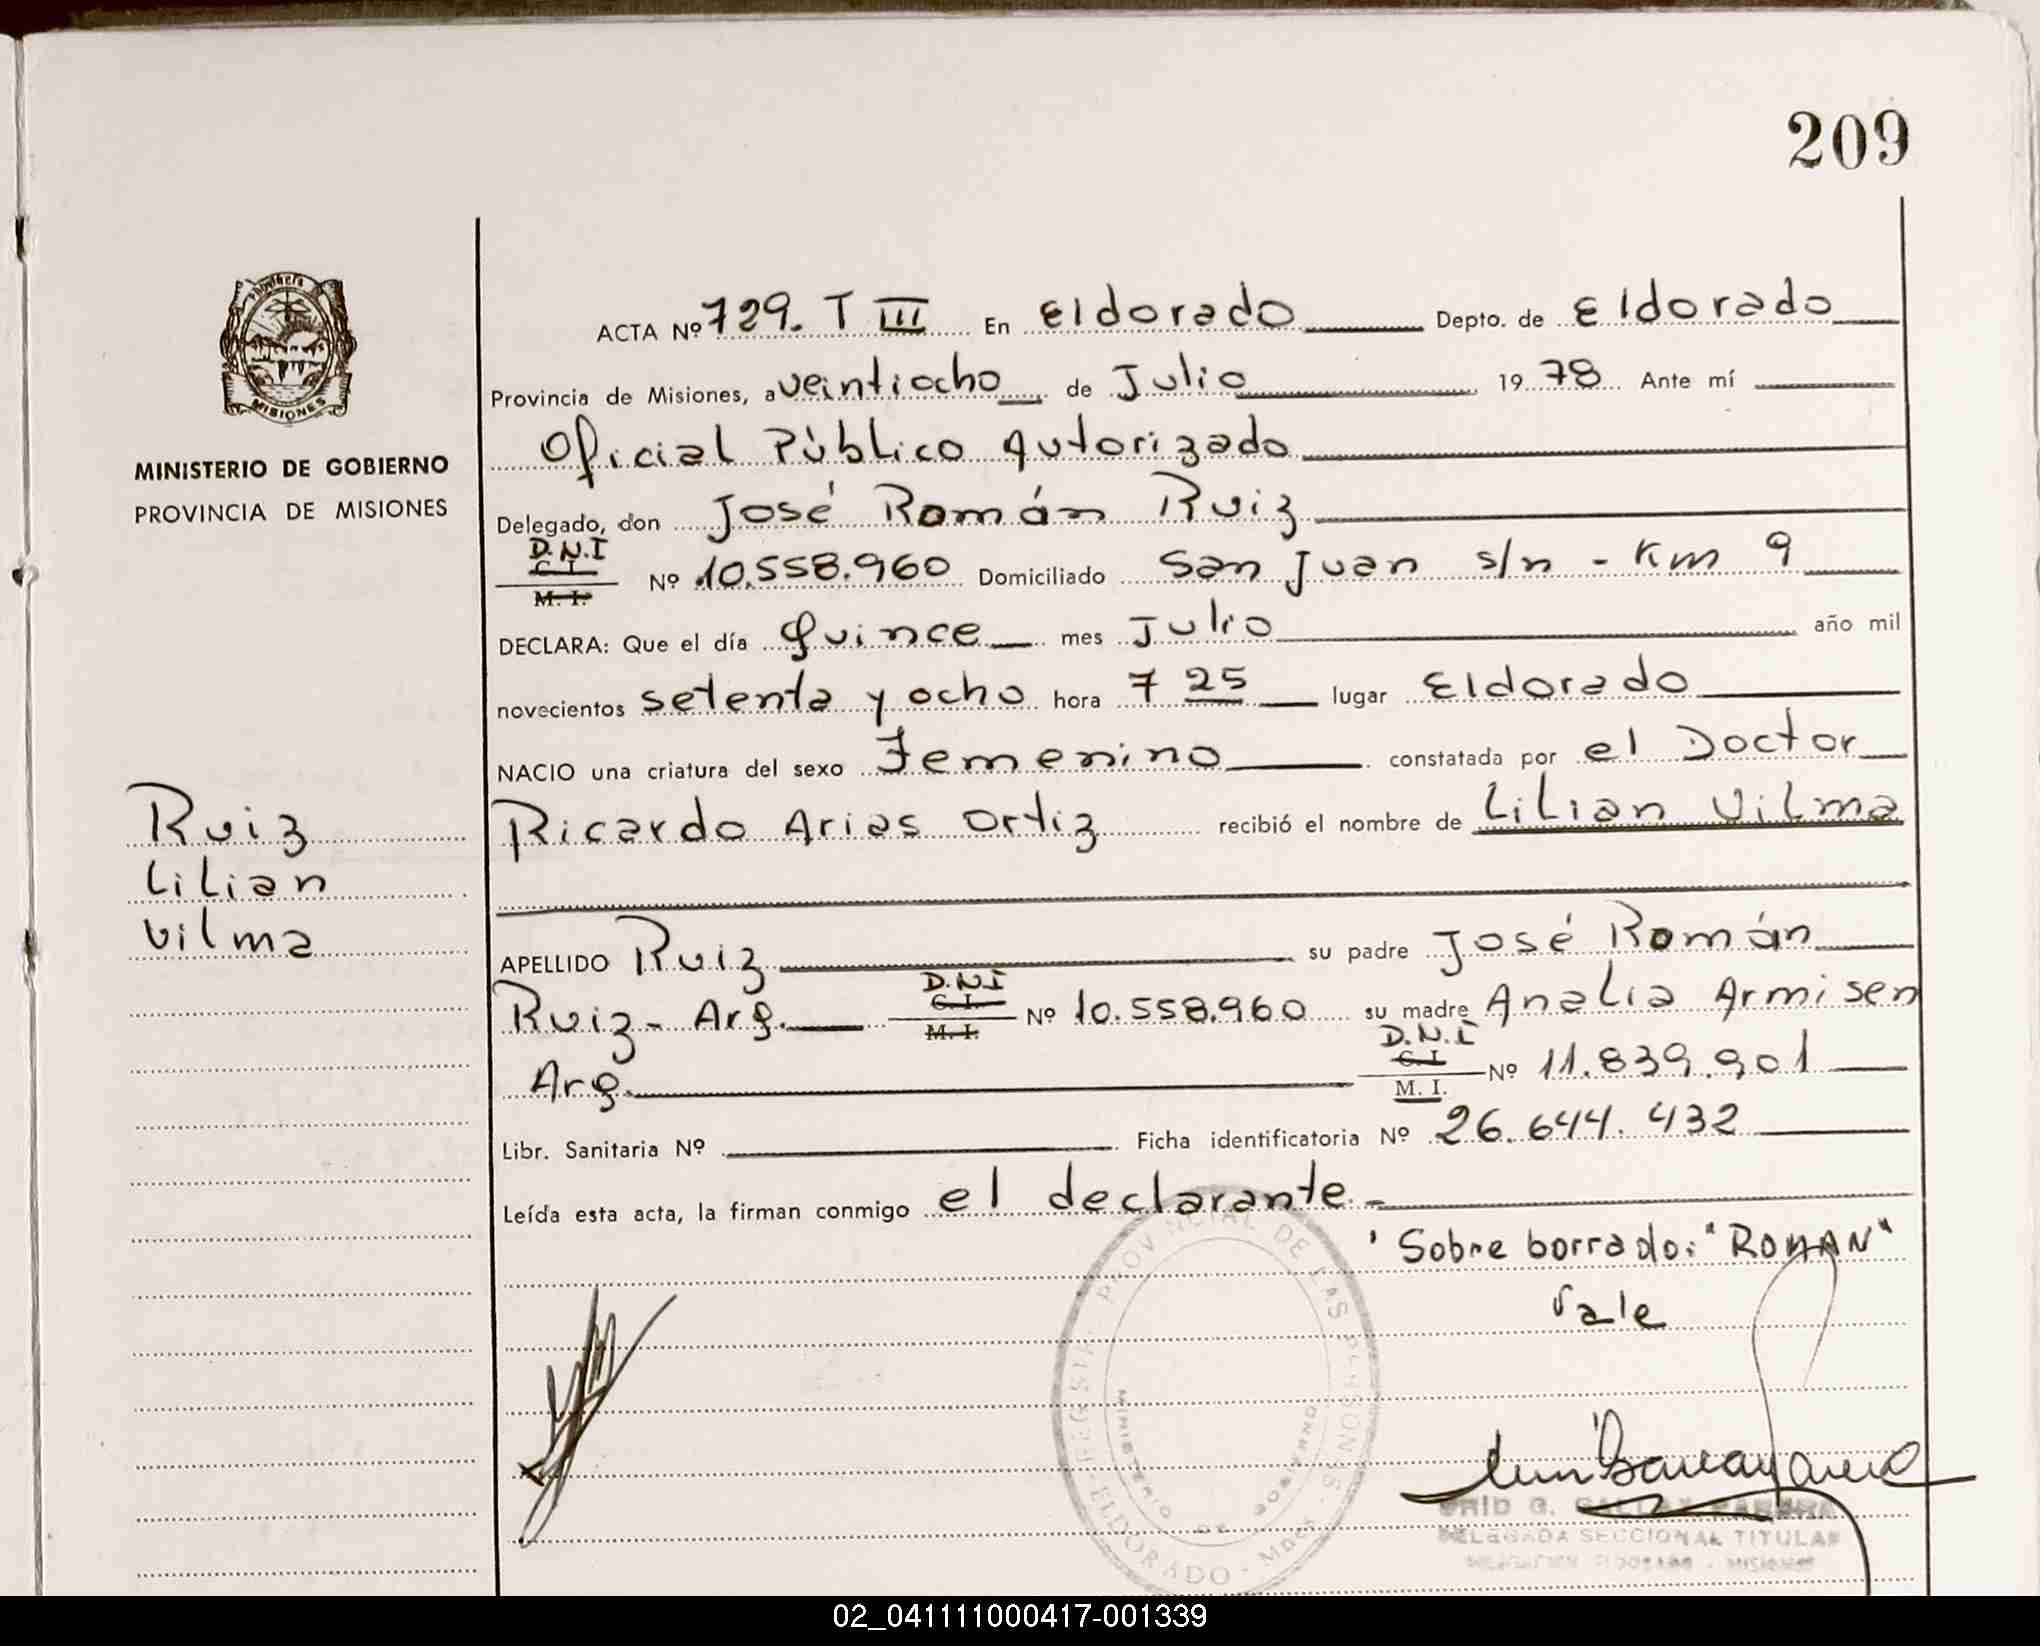 209
ACTA Nº 729. T III En Eldorado Depto. de Eldorado
Provincia de Misiones, a veintiocho de Julio 19 78 Ante mí
Oficial Público Autorizado
Delegado, don José Román Ruiz
D.N.I
C. I.
M. I.
Nº 10.558.960 Domiciliado San Juan s/n - Km 9
DECLARA: Que el día quince mes Julio año mil
novecientos setenta y ocho hora 7 25 lugar Eldorado
NACIO una criatura del sexo Femenino constatada por el Doctor
Ricardo Arias Ortiz recibió el nombre de Lilian Vilma
APELLIDO Ruiz su padre José Román
Ruiz - Arg. D.N.I C. I. M. I. Nº 10.558.960 su madre Analia Armisen
Arg. D.N.I C. I. M. I. Nº 11.839.901
Libr. Sanitaria Nº Ficha identificatoria Nº 26.644.432
Leída esta acta, la firman conmigo el declarante.-
Sobre borrado: "ROMAN"
Vale
MISIONES
MINISTERIO DE GOBIERNO
PROVINCIA DE MISIONES
Ruiz
Lilian
Vilma
REGISTRO PROVINCIAL DE LAS PERSONAS
MINISTERIO DE GOBIERNO
ELDORADO - Mnes.
DELEGADA SECCIONAL TITULAR
02_041111000417-001339